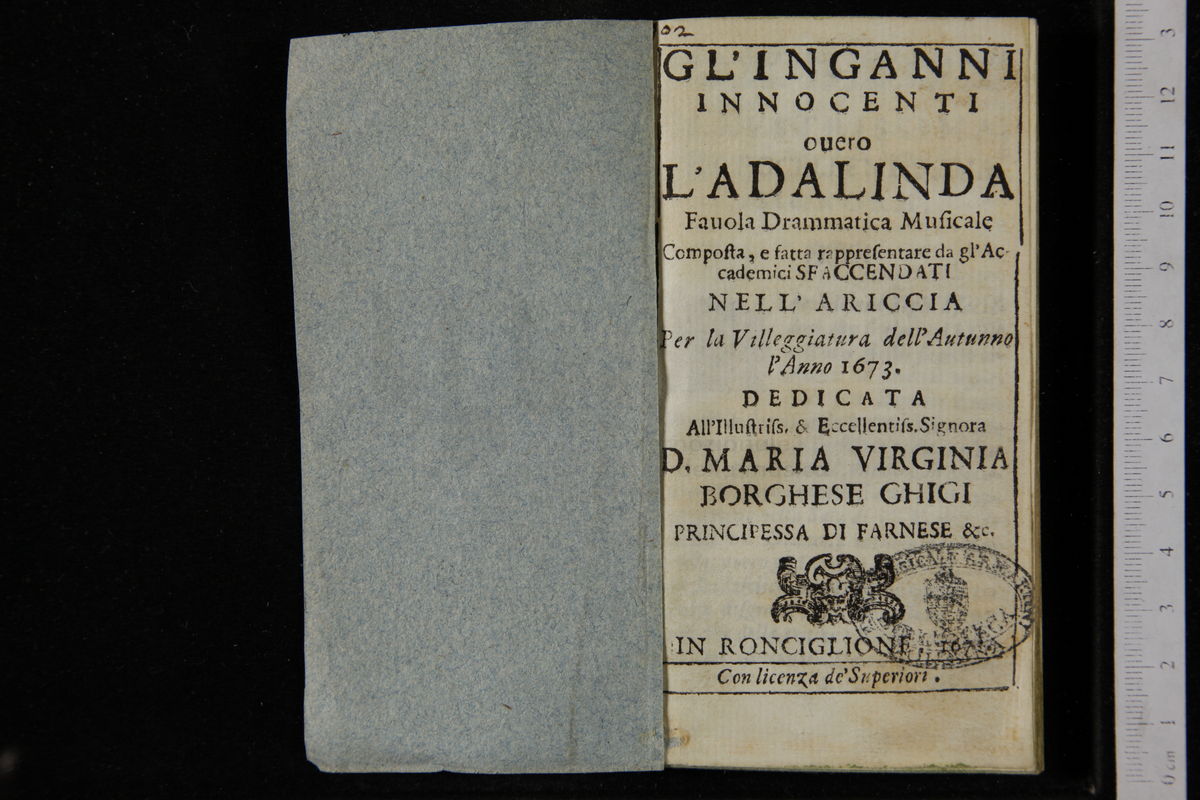 02
GL'INGANNI
INNOCENTI
ouero
L'ADALINDA
Fauola Drammatica Muſicale
Compoſta, e fatta rappreſentare da gl'Ac-
cademici SFACCENDATI
NELL' ARICCIA
Per la Villeggiatura dell'Autunno
l'Anno 1673.
DEDICATA
All'Illuſtriſs. & Eccellentiſs. Signora
D. MARIA VIRGINIA
BORGHESE GHIGI
PRINCIPESSA DI FARNESE &c.
IN RONCIGLIONE
Con licenza de'Superiori.
3
12
11
10
9
8
7
6
5
4
3
2
1
0 cm